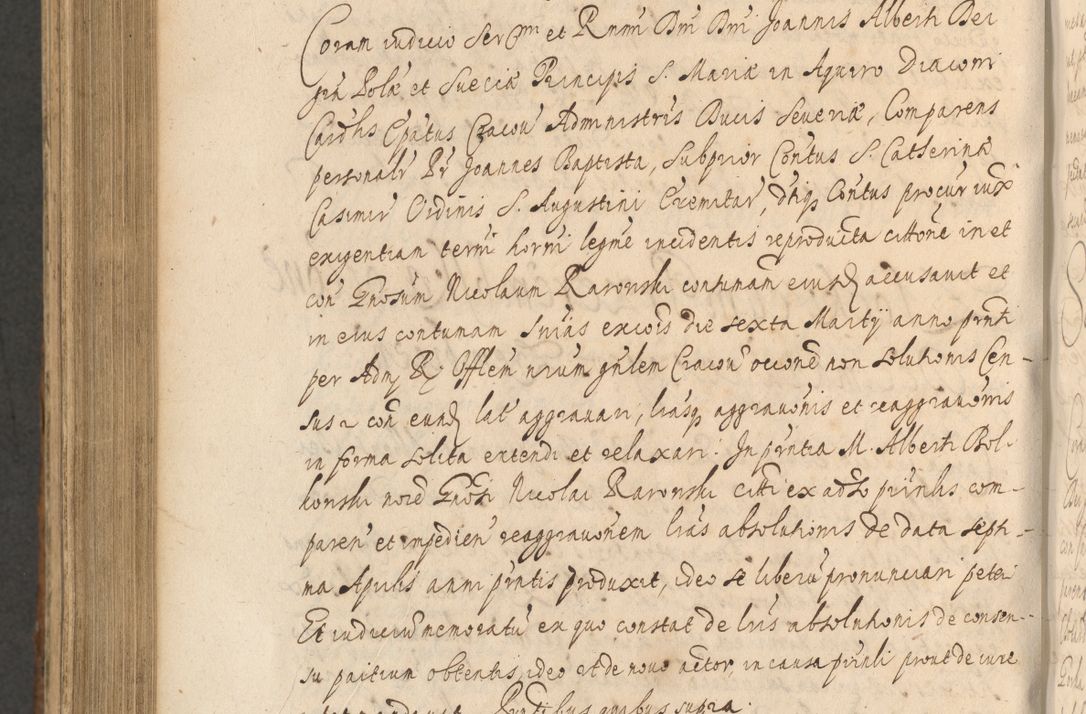 Coram iudicio Ser[mi] et Rnmi Dni Dni Joannis Alberti Dei
gra Polæ et Sueciæ Principis S. Mariæ in Aquiro Diaconi
Cardlis Epatus Cracou Administris Ducis Seueriæ, Comparens
personalr Pr Joannes Baptista, Subprior Contus S. Catherinæ
Casimir Ordinis S. Augustini Eremitar, dtiq Contus procur iux
exigentiam termi horni legme incidentis reproducta cittone in et
con Gnosum Nicolaum Raronski contumam eiusd accusauit et
in eius contumam Snias excois die sexta Martij anno prnti
per Adm R. Offlem nrum gnlem Cracou occone non solutionis Cen-
sus con eund lat aggrauari, lrasq aggrauonis et reaggrauonis
in forma solita extendi et relaxari. In prntia M. Alberti Bol-
konski noie Gnosi Nicolai Raronski citti ex adso prinlis com-
paren et impedien reaggrauonem lras absolutionis de data septi-
ma Aprilis anni prntis produxit, ideo se liberu pronunciari petei
Et iudiciu memoratu ex quo constat de lris absolutionis de consen-
su partium obtentis, ideo et de nouo actor, in causa prinli prout de iure
Prntibus quibus supra.